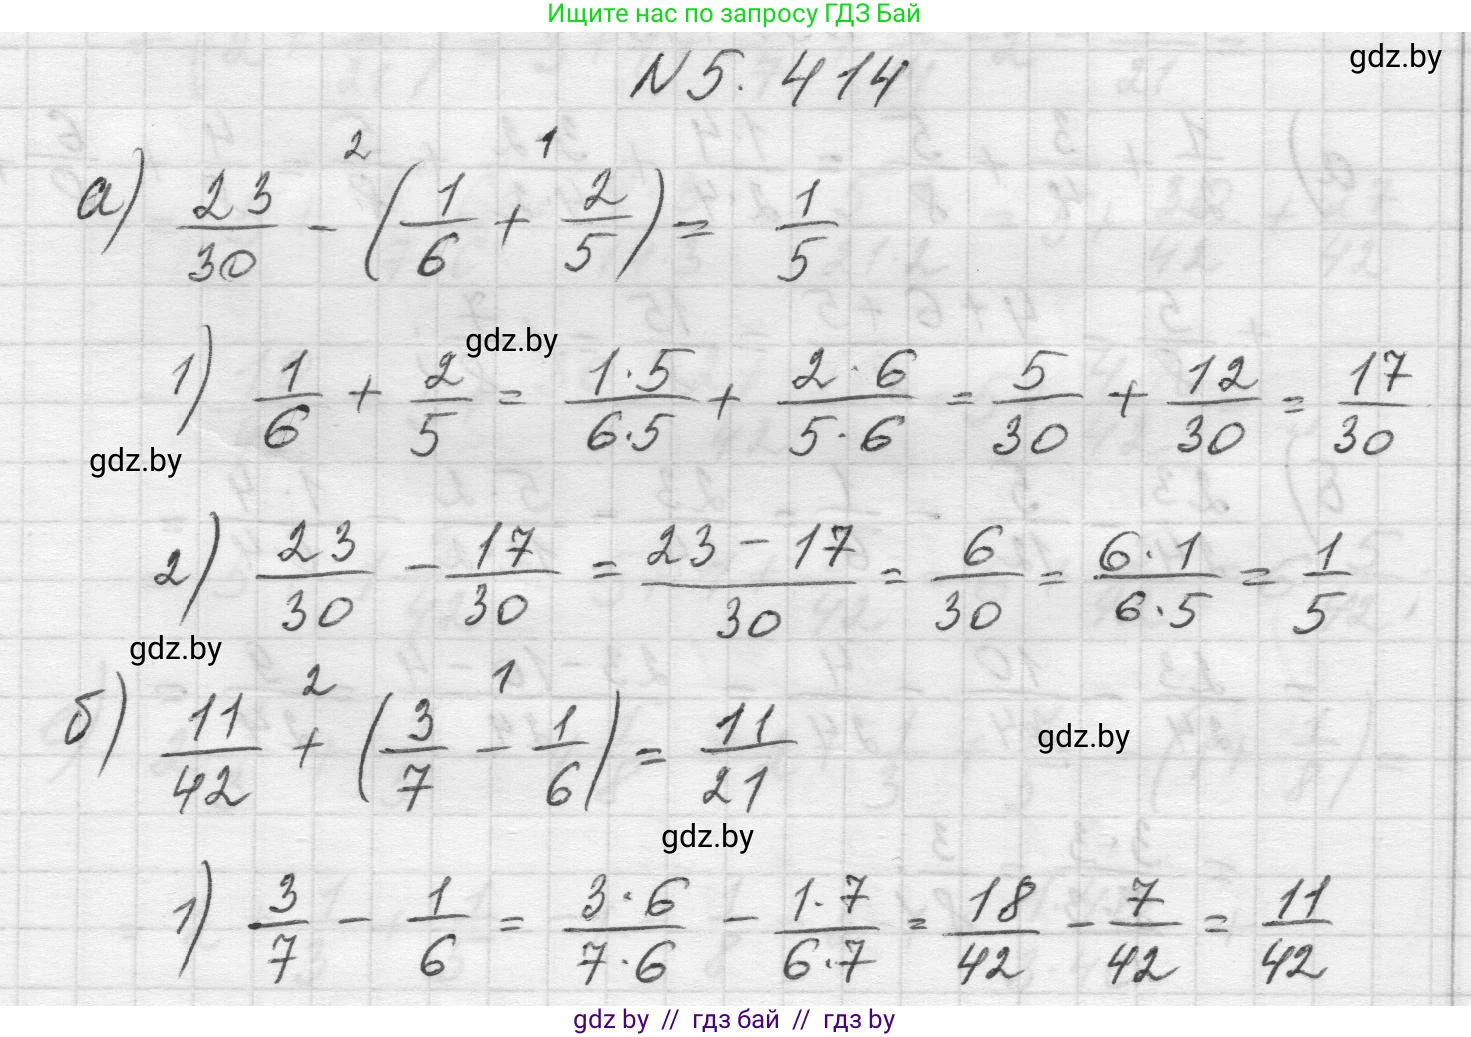 Ищите нас по запросу ГДЗ Бай
gdz.by
N 5. 414
а) 23/30 - (1/6 + 2/5) = 1/5
2 1
gdz.by
1) 1/6 + 2/5 = 1·5/6·5 + 2·6/5·6 = 5/30 + 12/30 = 17/30
gdz.by
2) 23/30 - 17/30 = 23-17/30 = 6/30 = 6·1/6·5 = 1/5
gdz.by
2 1
б) 11/42 + (3/7 - 1/6) = 11/21
gdz.by
gdz.by
1) 3/7 - 1/6 = 3·6/7·6 - 1·7/6·7 = 18/42 - 7/42 = 11/42
gdz by // гдз бай // гдз by